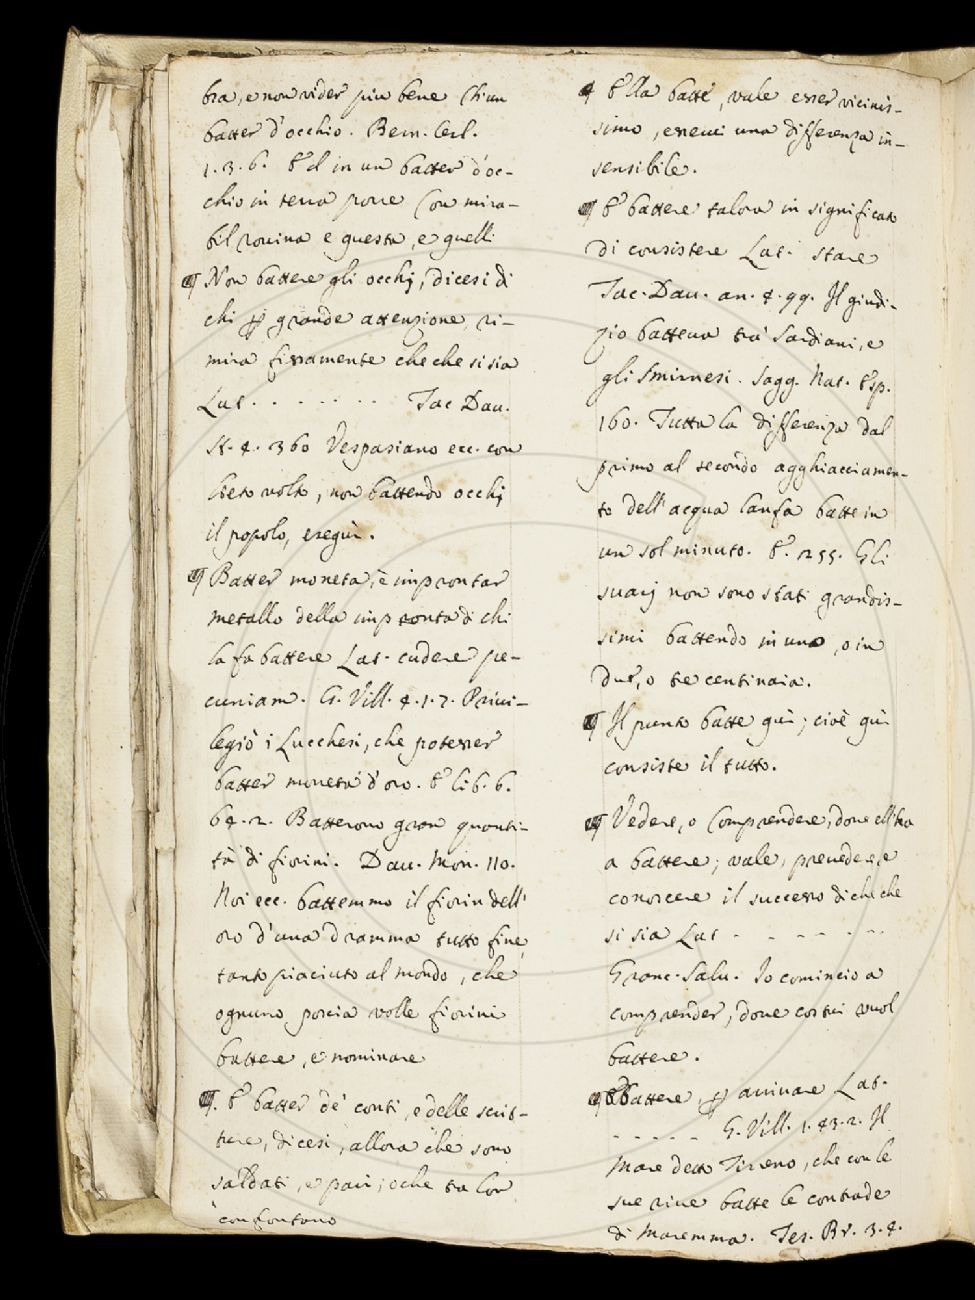 bra, e non vider piu bene Ch'un
batter d'occhio. Bern. Orl.
1. 3. 6. E d in un batter d'oc-
chio in terra porre Con mira-
bil rouina e questa, e quelli
¶ Non battere gli occhj, dicesi di
chi ꝑ grande attenzione, ri-
mira fissamente che che si sia
Lat. - - - - - - - Tac. Dau.
St. 4. 360 Vespasiano ecc. con
lieto volto, non battendo occhj
il popolo, eseguì.
¶ Batter moneta, è improntar
metallo della impronta di chi
la fa battere Lat. cudere pe-
cuniam. G. Vill. 4. 1. 7. Priui-
legiò i Lucchesi, che potesser
batter moneta d'oro. E lib. 6.
54. 2. Batterono gran quanti-
tà di fiorini. Dau. Mon. 110.
Noi ecc. battemmo il fiorin dell'
oro d'una dramma tutto fine,
tanto piaciuto al mondo, che
ognuno poscia volle fiorini
battere, e nominare
¶. E batter de' conti, e delle scrit-
ture, dicesi, allora che sono
saldati, e pari; o che tra lor
confrontano
¶ E la batte, vale esser vicinis-
simo, esserui una differenza in-
sensibile.
¶ E battere talora in significato
di consistere Lat. stare
Tac. Dau. an. 4. 99. Il giudi-
zio batteua tra' Sardiani, e
gli Smirnesi. Sagg. Nat. Esp.
160. Tutta la differenza dal
primo al secondo agghiacciamen-
to dell'acqua lanfa batte in
un sol minuto. E. 255. Gli
suarj non sono stati grandis-
simi battendo in uno, o in
due, o tre centinaia.
¶ Il punto batte quì; cioè quì
consiste il tutto.
¶ Vedere, o Comprendere, doue ell'ha
a battere; vale, preuedere, e
conoscere il successo di che che
si sia Lat - - - - - -
Granc. Salu. Io comincio a
comprender, doue costui vuol
battere.
¶ Battere, ꝑ arriuare Lat.
- - - - - G. Vill. 1. 43. 2. Il
Mare detto Tirreno, che con le
sue riue batte le contrade
di Maremma. Tes. Br. 3. 4.